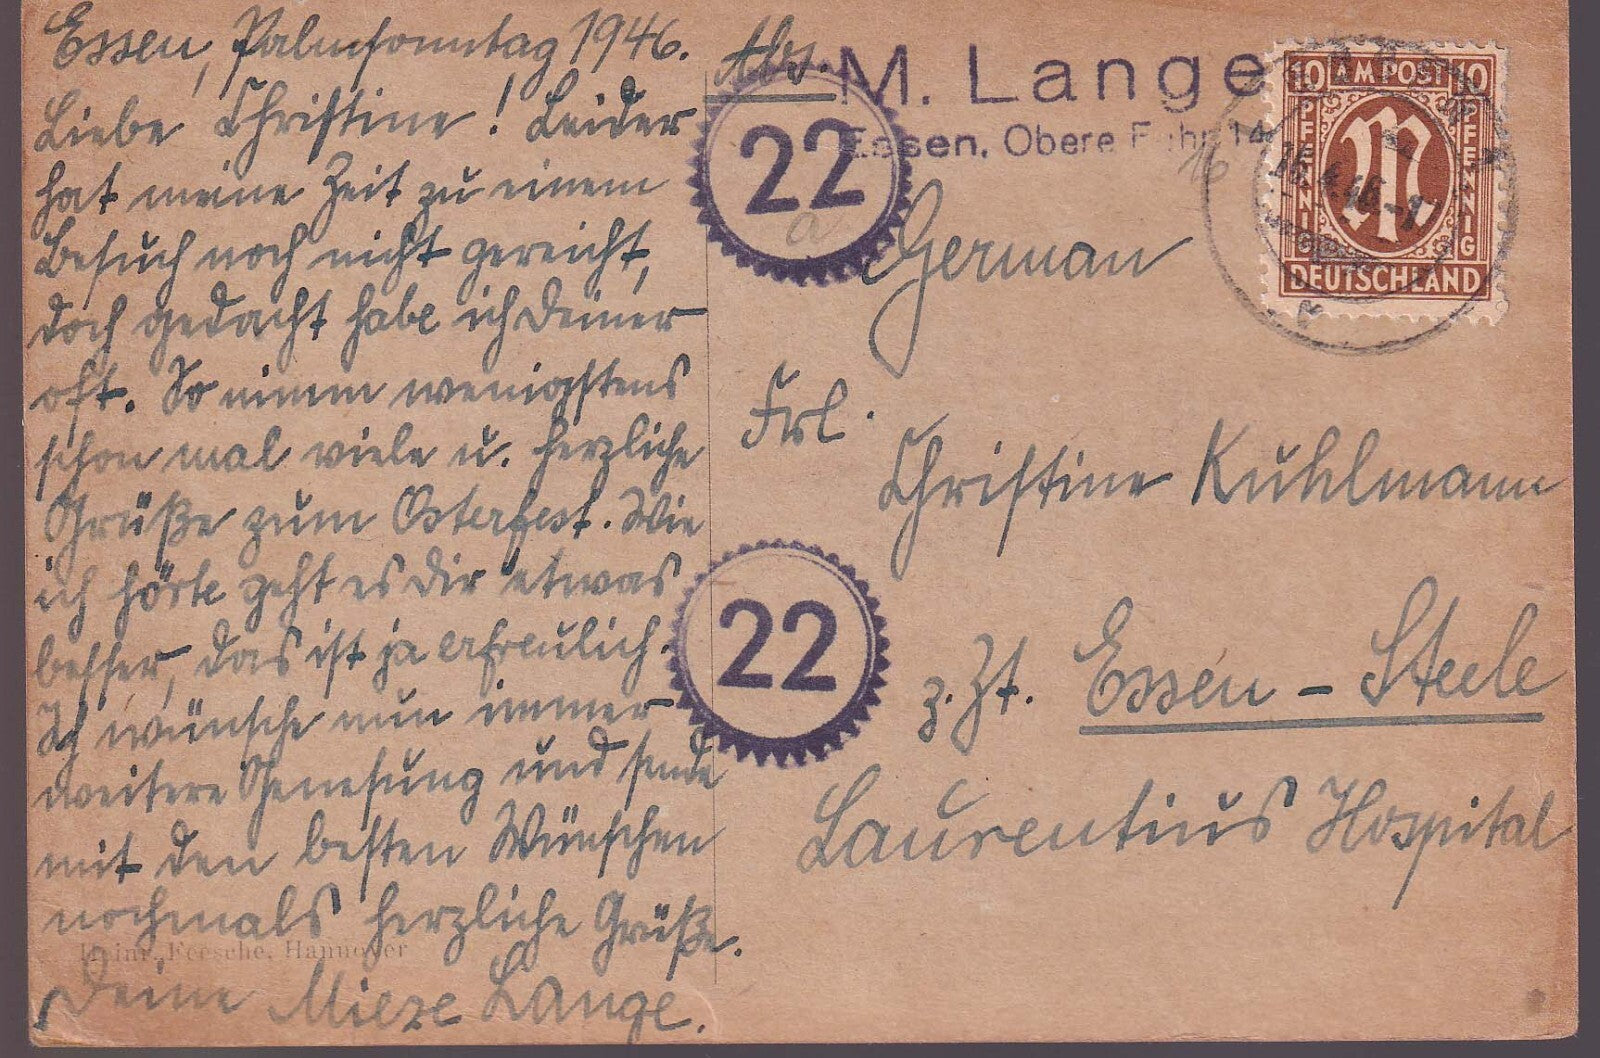 Essen, Palmsonntag 1946.
Liebe Christine! Leider
hat meine Zeit zu einem
Besuch noch nicht gereicht,
doch gedacht habe ich Deiner
oft. So nimm wenigstens
schon mal viele u. herzliche
Grüße zum Osterfest. Wie
ich hörte geht es Dir etwas
besser, das ist ja erfreulich.
Ich wünsche nun immer
weitere Genesung und sende
mit den besten Wünschen
nochmals herzliche Grüße.
Deine Mieze Lange.
Heinr. Feesche, Hannover
Abs. M. Lange
Essen, Obere 14
16
22
a
10 AM POST 10
PFENNIG
PFENNIG
M
DEUTSCHLAND
16.4.46
German
Frl.
Christine Kuhlmann
22
z. Zt. Essen - Steele
Laurentius Hospital